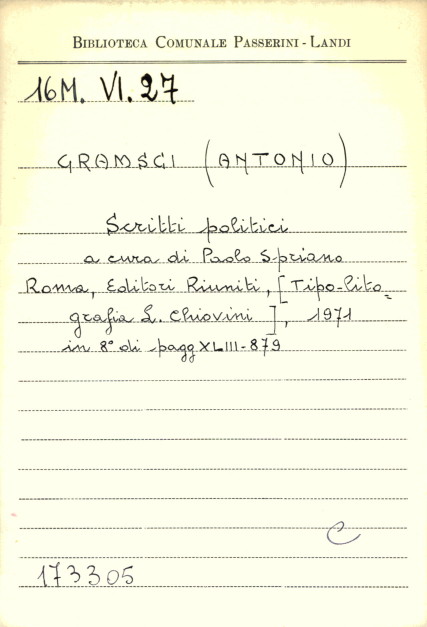 BIBLIOTECA COMUNALE PASSERINI - LANDI
16M. VI. 27
GRAMSCI (ANTONIO)
Scritti politici
a cura di Paolo Spriano
Roma, Editori Riuniti, [Tipo-lito=
grafia L. Chiovini], 1971
in 8° di pagg XLIII-879
C
173305